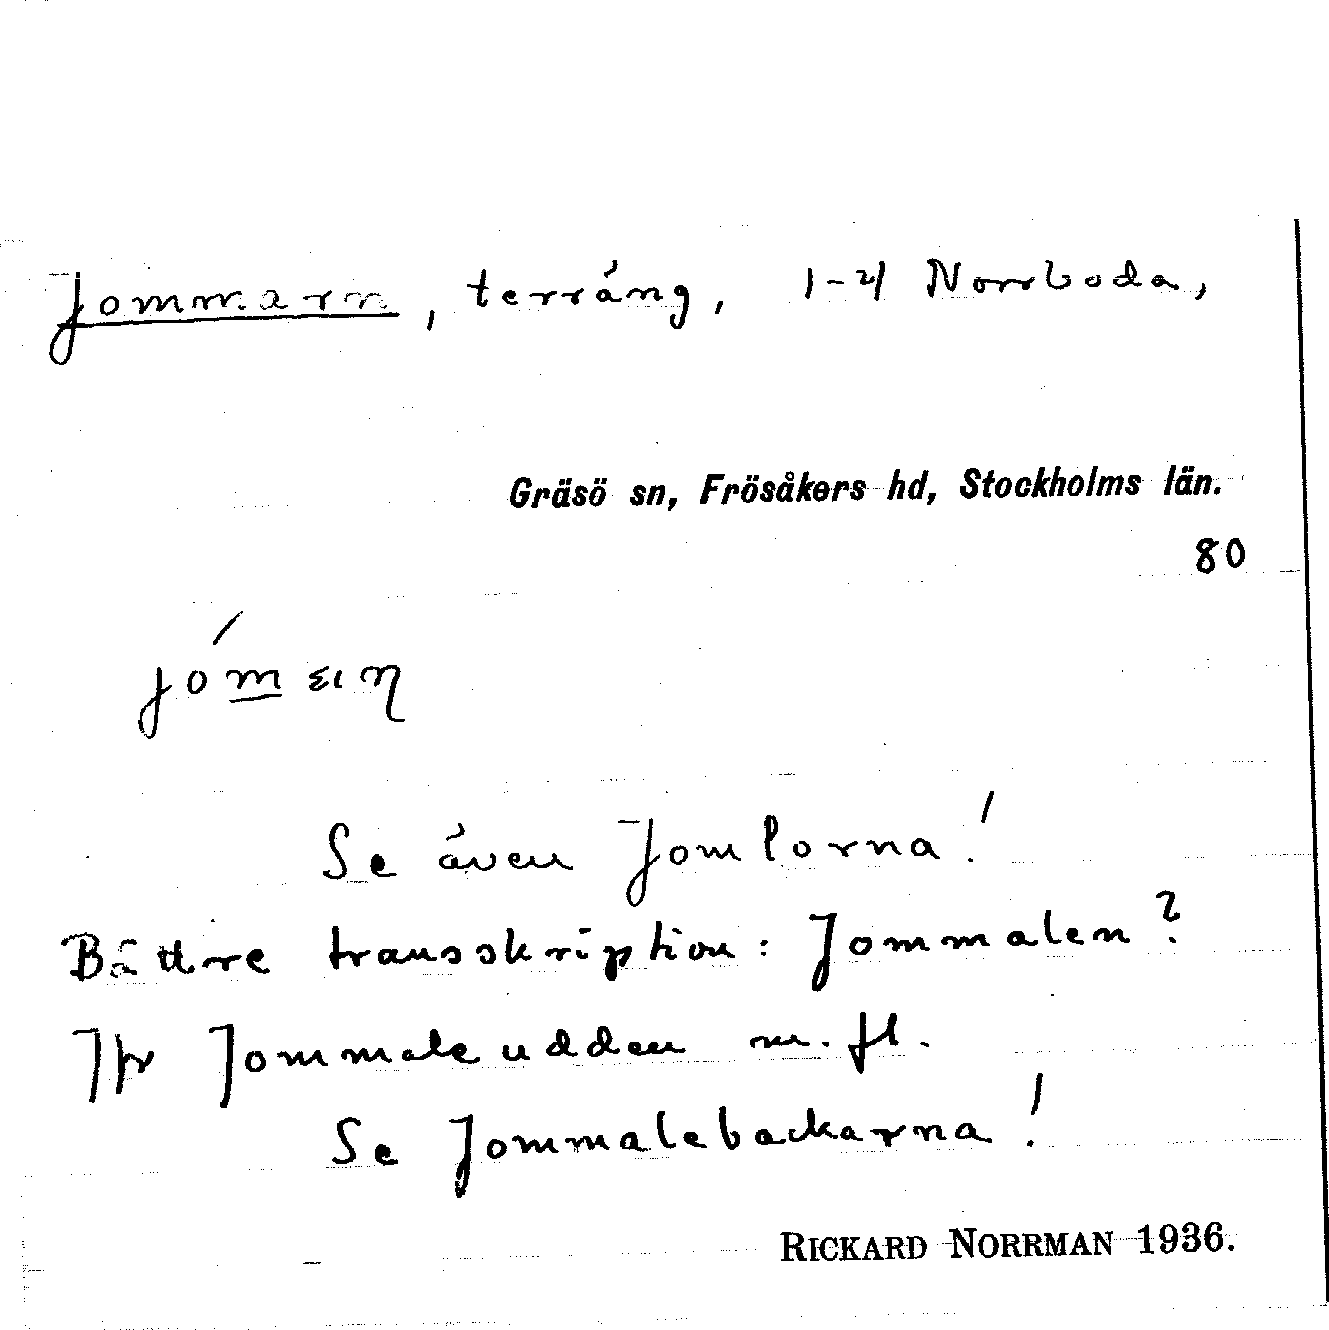 Jommarn, terräng, 1-4 Norrboda,
Gräsö sn, Frösåkers hd, Stockholms län.
80
Se även Jomlorna!
Bättre transskription: Jommalen?
Jfr Jommaleudden m. fl.
Se Jommalebackarna!
RICKARD NORRMAN 1936.